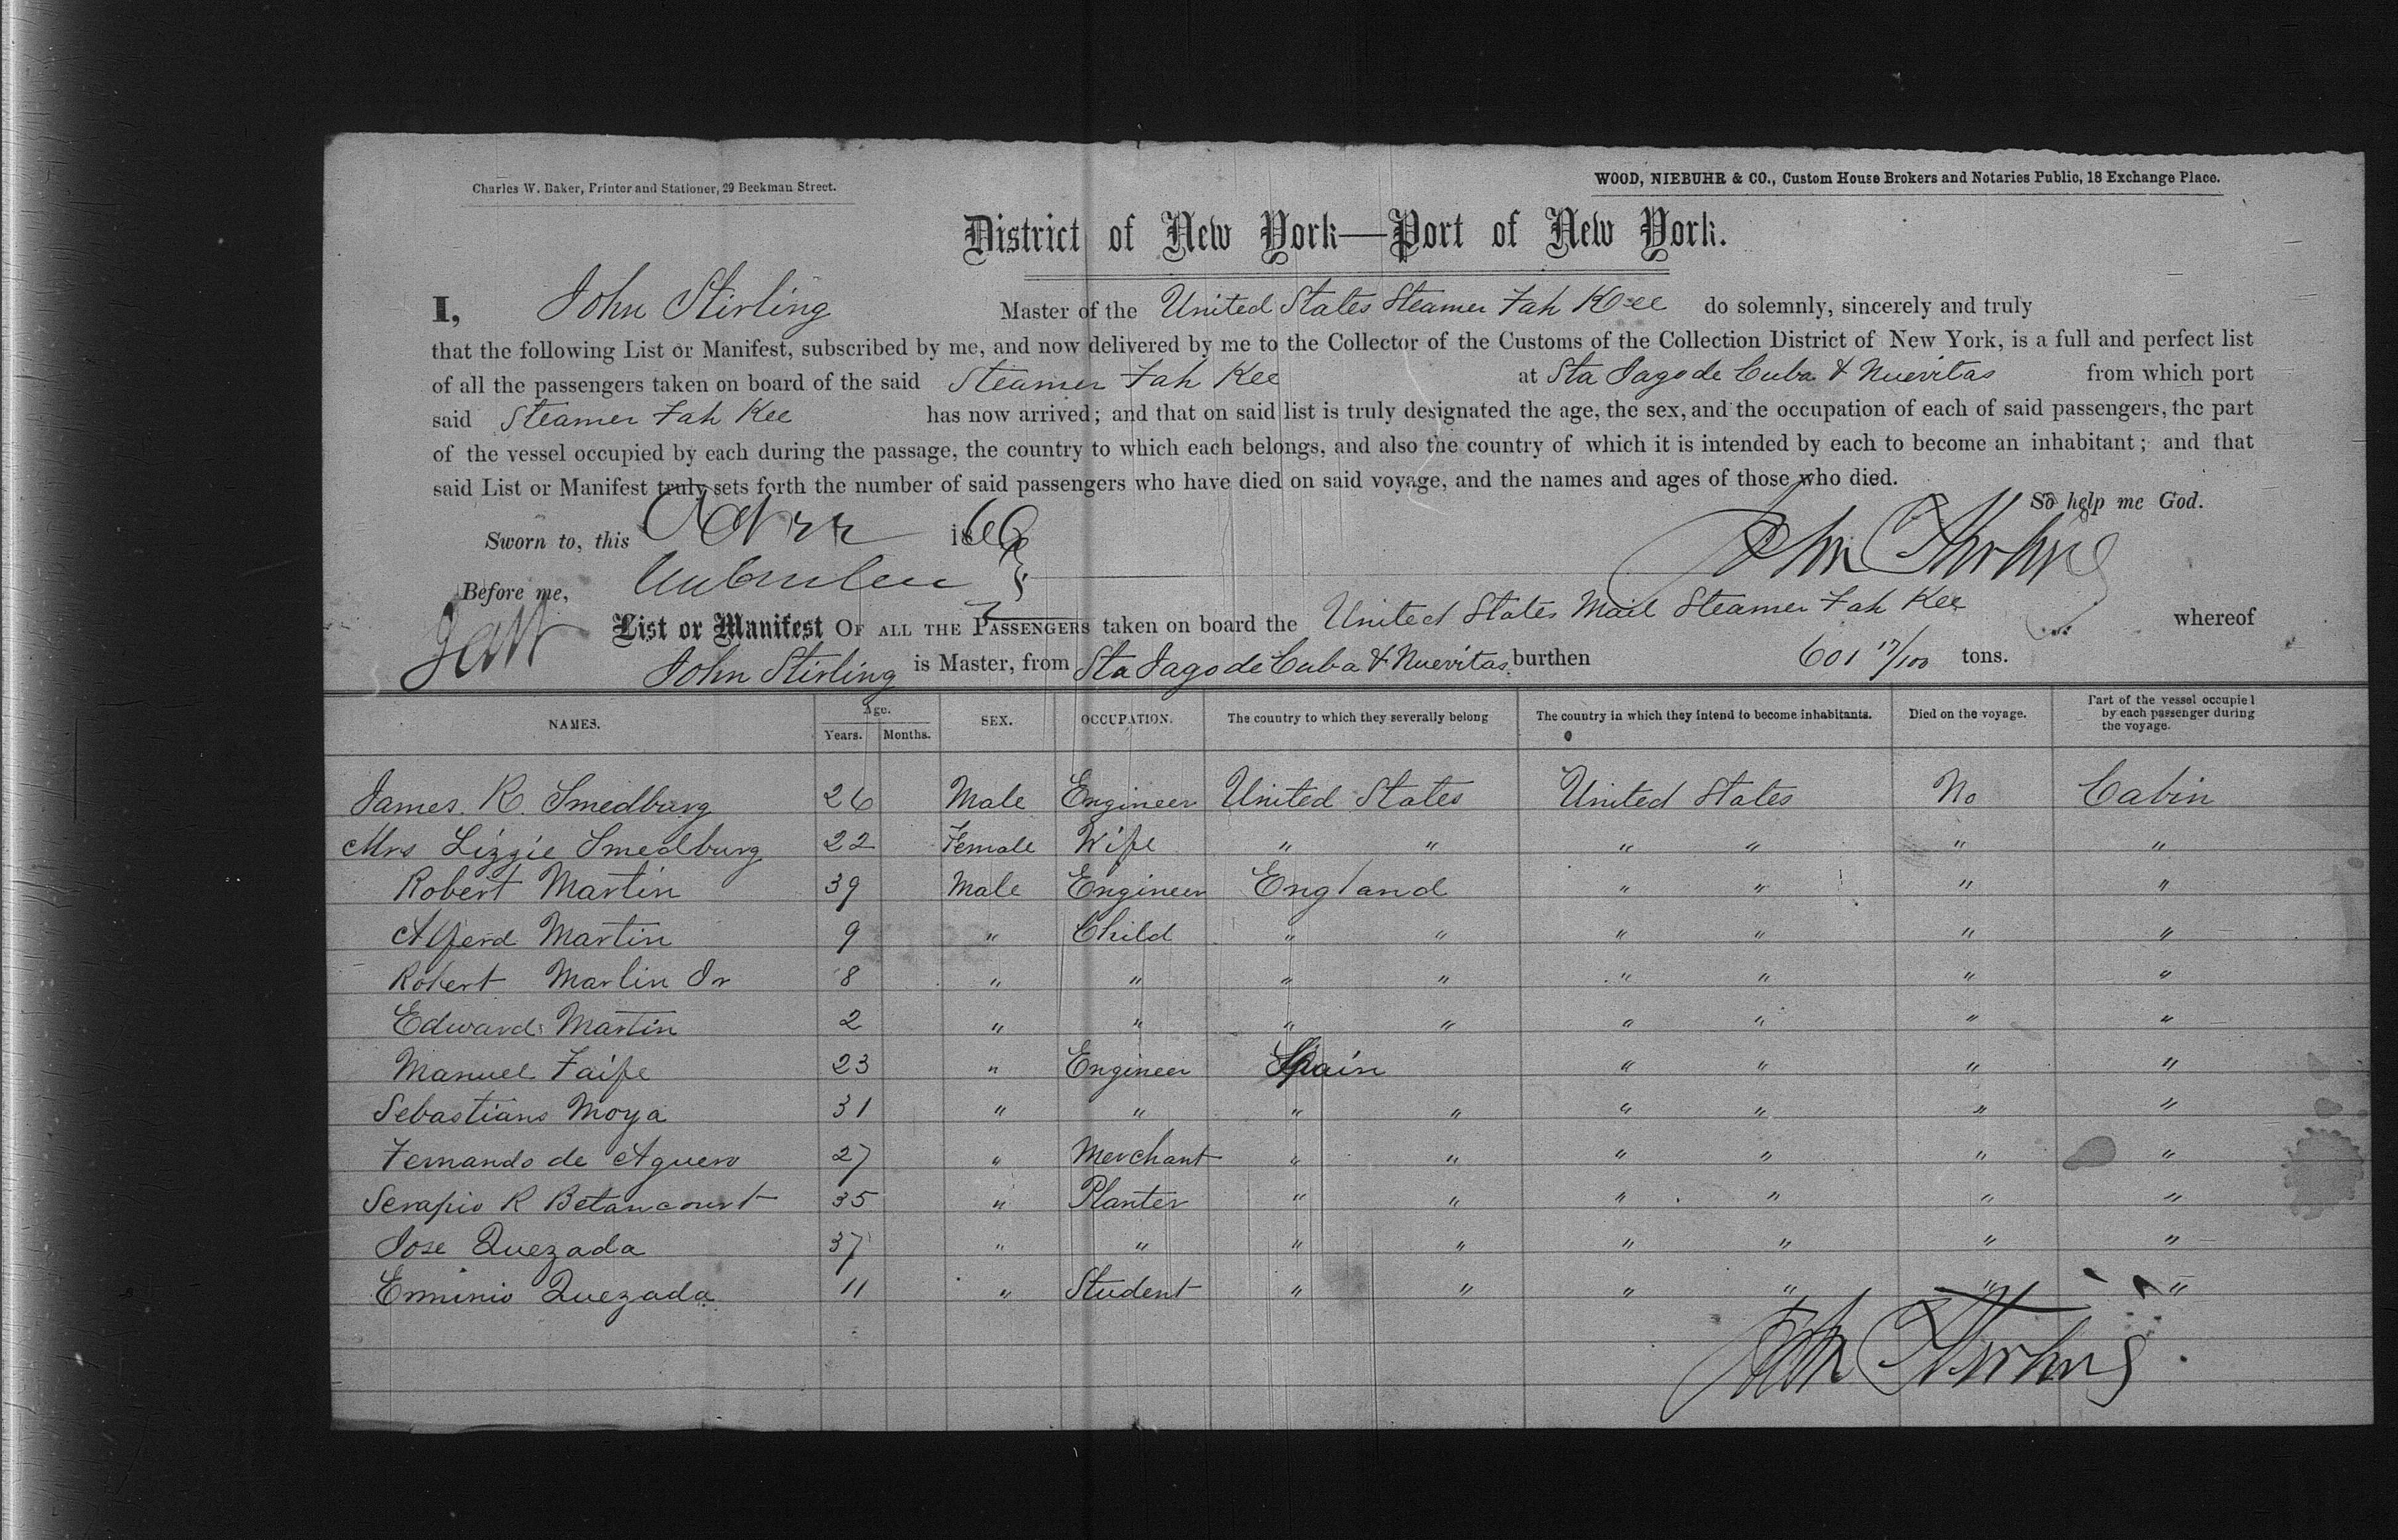 Charles W. Baker, Printer and Stationer, 29 Beekman Street.
WOOD, NIEBUHR & CO., Custom House Brokers and Notaries Public, 18 Exchange Place.
District of New York—Port of New York.
I, John Stirling Master of the United States Steamer Fah Kee do solemnly, sincerely and truly
that the following List or Manifest, subscribed by me, and now delivered by me to the Collector of the Customs of the Collection District of New York, is a full and perfect list
of all the passengers taken on board of the said Steamer Fah Kee at Sta Jago de Cuba & Nuevitas from which port
said Steamer Fah Kee has now arrived; and that on said list is truly designated the age, the sex, and the occupation of each of said passengers, the part
of the vessel occupied by each during the passage, the country to which each belongs, and also the country of which it is intended by each to become an inhabitant; and that
said List or Manifest truly sets forth the number of said passengers who have died on said voyage, and the names and ages of those who died.
So help me God.
Sworn to, this Oct 22 186
John Stirling
Before me,
List or Manifest OF ALL THE PASSENGERS taken on board the United States Mail Steamer Fah Kee whereof
John Stirling is Master, from Sta Jago de Cuba & Nuevitas burthen 601 17/100 tons.
NAMES. Age. Years. Months. SEX. OCCUPATION. The country to which they severally belong The country in which they intend to become inhabitants. Died on the voyage. Part of the vessel occupied by each passenger during the voyage.
James R. Smedburg 26 Male Engineer United States United States No Cabin
Mrs Lizzie Smedburg 22 Female Wife " " " " " "
Robert Martin 39 Male Engineer England " " " "
Alferd Martin 9 " Child " " " " " "
Robert Martin Jr 8 " " " " " " " "
Edward Martin 2 " " " " " " " "
Manuel Faife 23 " Engineer Spain " " " "
Sebastians Moya 31 " " " " " " " "
Fernando de Aguero 27 " Merchant " " " " " "
Serapio R Betancourt 35 " Planter " " " " " "
Jose Quezada 37 " " " " " " " "
Erminio Quezada 11 " Student " " " " " "
John Stirling